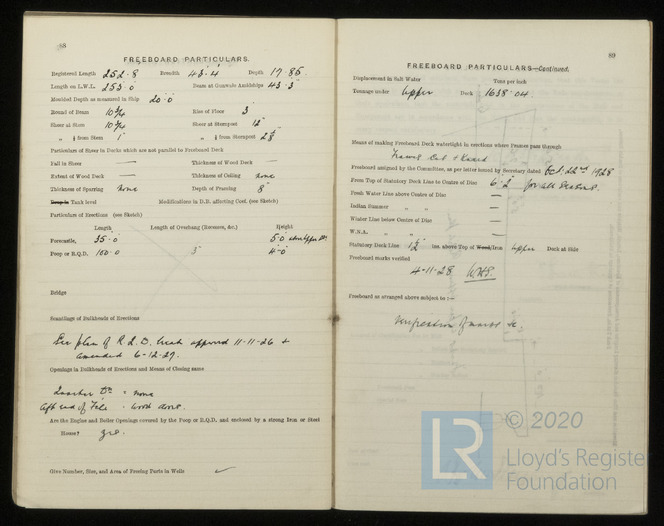 88
FREEBOARD PARTICULARS.
Registered Length 252·8 Breadth 43·4 Depth 17·85
Length on L.W.L. 253·0 Beam at Gunwale Amidships 43·3
Moulded Depth as measured in Ship 20·0
Round of Beam 10¾ Rise of Floor 3
Sheer at Stem Sheer at Sternpost
„ ⅛ from Stem „ ⅛ from Sternpost
Particulars of Sheer in Decks which are not parallel to Freeboard Deck
Fall in Sheer — Thickness of Wood Deck —
Extent of Wood Deck — Thickness of Ceiling none
Thickness of Sparring none Depth of Framing 8"
Tank level Modifications in D.B. affecting Coef. (see Sketch)
Particulars of Erections (see Sketch)
Length Length of Overhang (Recesses, &c.) Height
Forecastle, 35·0 5·0 above upper
Poop or R.Q.D. 100·0 4·0
Bridge
Scantlings of Bulkheads of Erections
See plan of R.Q.D. bhead approved 11-11-26 +
amended 6-12-27.
Openings in Bulkheads of Erections and Means of Closing same
Quarter Dk = none
Aft end of Fcle · wood doors.
Are the Engine and Boiler Openings covered by the Poop or R.Q.D. and enclosed by a strong Iron or Steel
House? yes.
Give Number, Size, and Area of Freeing Ports in Wells
89
FREEBOARD PARTICULARS—Continued.
Displacement in Salt Water Tons per inch
Tonnage under Upper Deck 1638·04
Means of making Freeboard Deck watertight in erections where Frames pass through
Frames Cut &
Freeboard assigned by the Committee, as per letter issued by Secretary dated Oct. 22nd 1928
From Top of Statutory Deck Line to Centre of Disc 6·2 for all seasons.
Fresh Water Line above Centre of Disc —
Indian Summer „ „ —
Winter Line below Centre of Disc —
W.N.A. „ „ —
Statutory Deck Line ins. above Top of Wood/Iron Upper Deck at Side
Freeboard marks verified
4-11-28
Freeboard as arranged above subject to :—
Verification of marks &c.
LR
© 2020
Lloyd's Register
Foundation